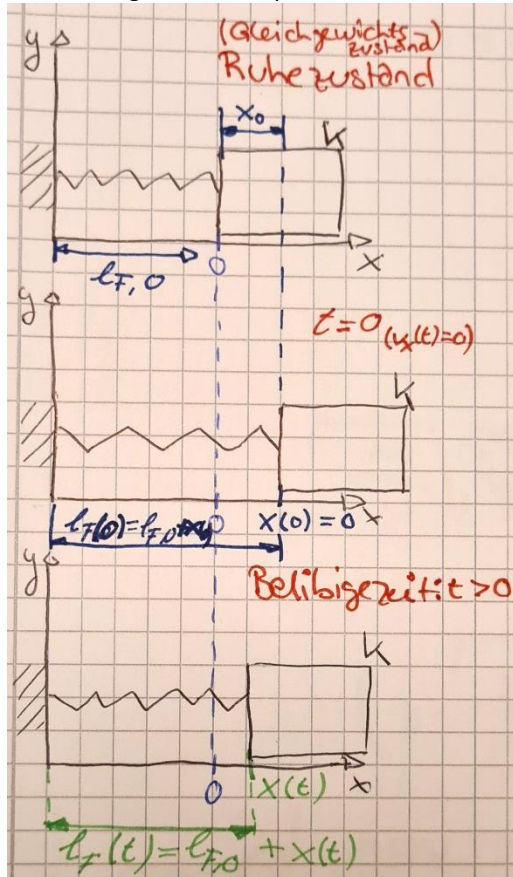 y
(Gleichgewichts-
zustand)
Ruhezustand
x₀
K
0
x
l_F,0
y
t=0 (vₓ(t)=0)
K
l_F(0)=l_F,0
0
x(0)=0
x
y
Belibige zeit: t>0
K
0
x(t)
x
l_F(t)=l_F,0 + x(t)